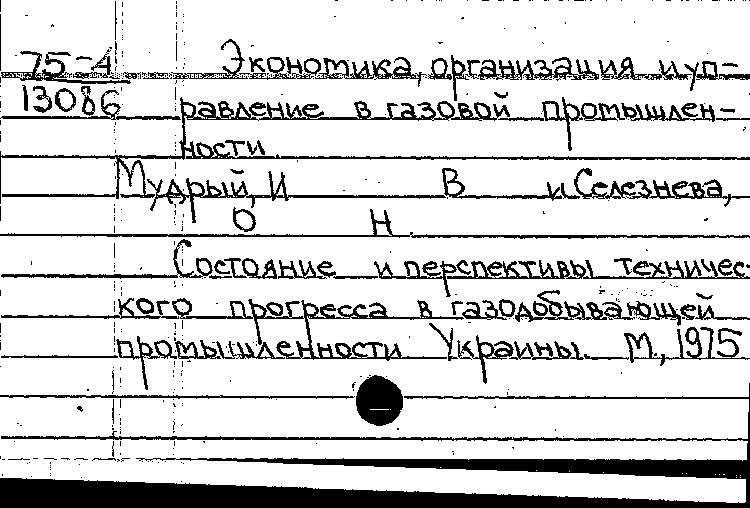 75-4 Экономика, организация и уп-
13086 равление в газовой промышлен-
ности.
Мудрый, И В и Селезнева,
О Н.
Состояние и перспективы техничес-
кого прогресса в газодобывающей
промышленности Украины. М., 1975